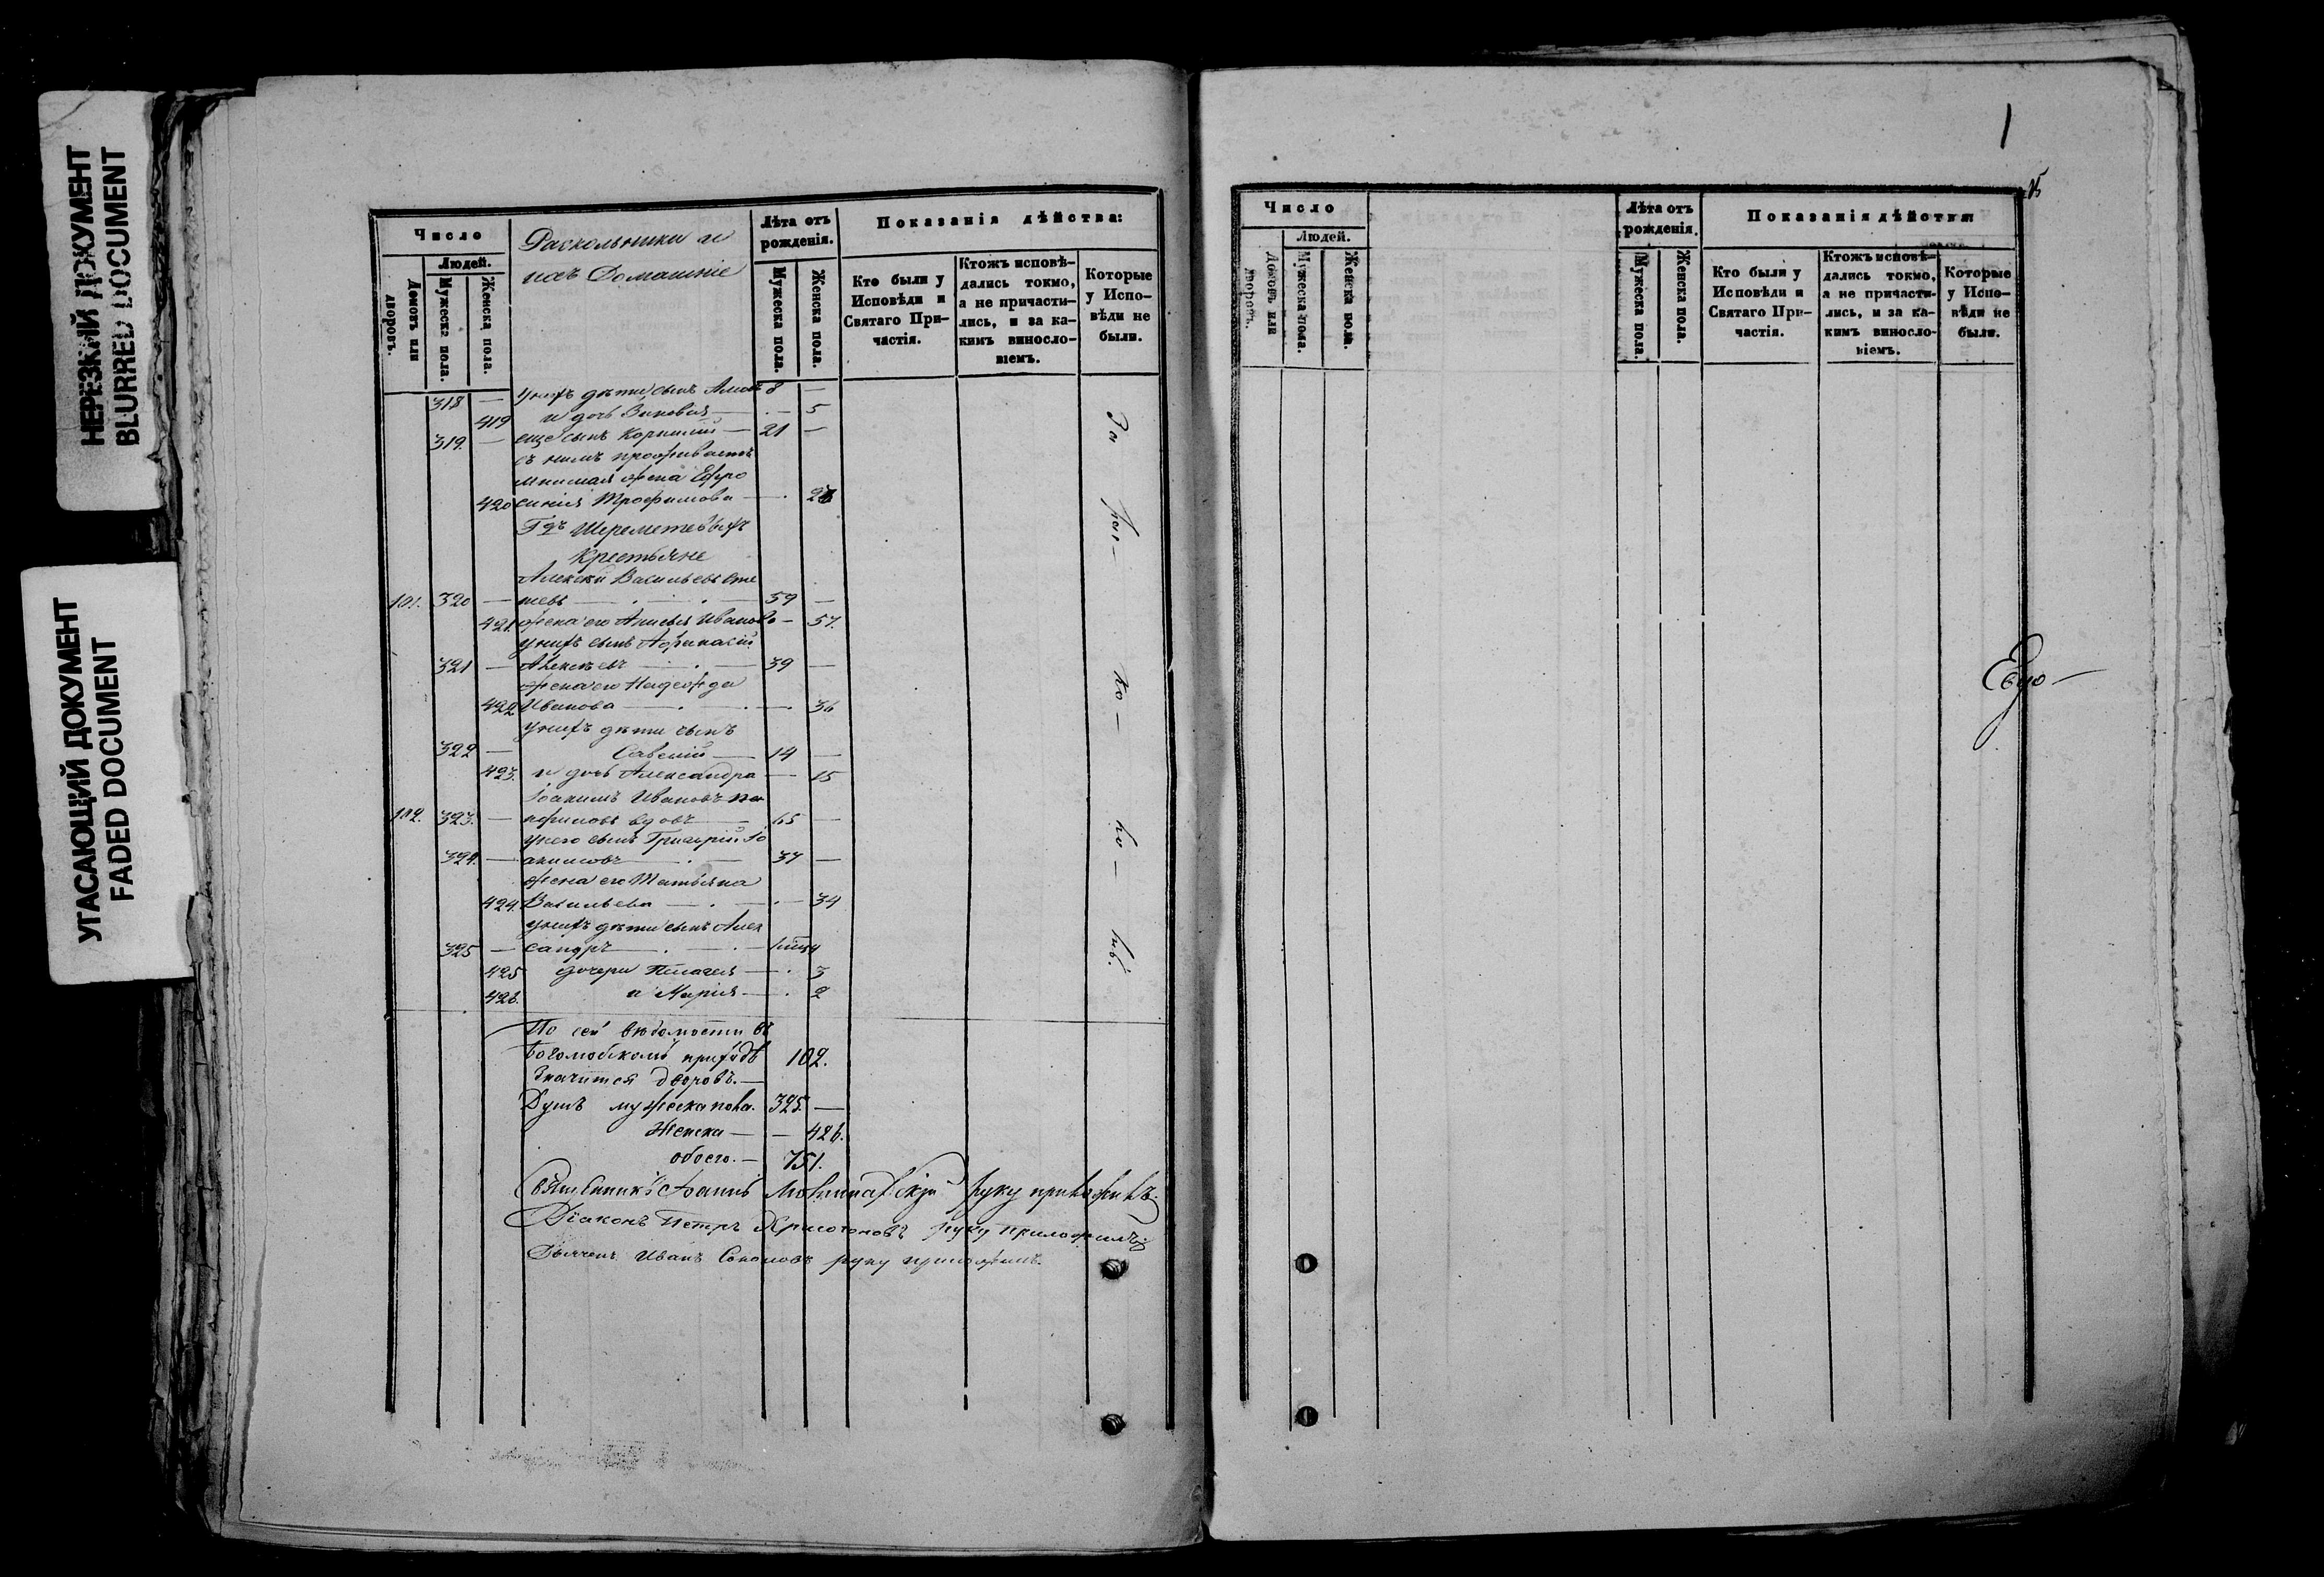 НЕРЕЗКИЙ ДОКУМЕНТ
BLURRED DOCUMENT
УГАСАЮЩИЙ ДОКУМЕНТ
FADED DOCUMENT
Число
Людей.
Домовъ или дворовъ.
Мужеска пола.
Женска пола.
Раскольники и
ихъ Домашніе
Лѣта отъ рожденія.
Мужеска пола.
Женска пола.
Показанія дѣйства:
Кто были у Исповѣди и Святаго При-
частія.
Ктожъ исповѣ-
дались токмо,
а не причасти-
лись, и за ка-
кимъ виносло-
віемъ.
Которые
у Испо-
вѣди не
были.
318 — у нихъ дѣти сынъ 8 —
419 и дочь Зиновія — 5
319. — еще сынъ Корнилій — 21 —
съ нимъ проживаетъ
мнимая жена Евфро
420 синія Трофимова —
Гдъ Шереметевыхъ
Крестьяне
Алексѣй Васильевъ
101. 320 — 59 —
421. жена его Анисья Иванова — 57.
у нихъ сынъ Афанасій
321 — Алексѣевъ — 39 —
жена его Надежда
422 Иванова — 36
у нихъ дѣти сынъ
322 — Савелій — 14 —
423. и дочь Александра — 15
Іоакимъ Ивановъ
102. 323. — вдовъ — 65 —
у него сынъ Григорій Іо
324. — акимовъ — 37 —
жена его Татьяна
424. Васильева — 34
у нихъ дѣти сынъ Алек
325 — сандръ —
425 дочери Пелагея — 3
426. и Марія — 2
За
рас-
ко-
ло-
мъ.
По сей вѣдомости въ
приходѣ 102.
значится дворовъ. —
Душъ мужеска пола. 325. —
Женска — — 426.
обоего. — 751.
Священникъ Іоаннъ руку приложилъ.
Діаконъ Петръ руку приложилъ.
Дьячекъ Иванъ Соколовъ руку приложилъ.
Число
Людей.
Домовъ или дворовъ.
Мужеска пола.
Женска пола.
Лѣта отъ рожденія.
Мужеска пола.
Женска пола.
Показанія дѣйства
Кто были у Исповѣди и Святаго При-
частія.
Ктожъ исповѣ-
дались токмо,
а не причасти-
лись, и за ка-
кимъ виносло-
віемъ.
Которые
у Испо-
вѣди не
были.